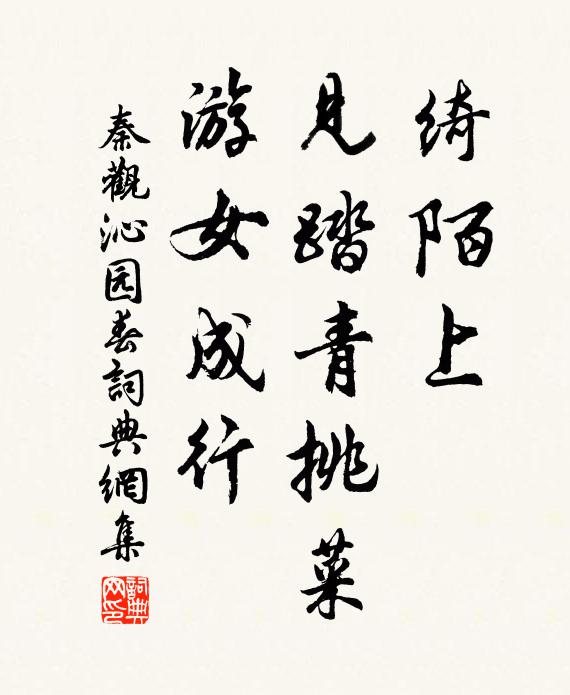 绮陌上
见踏青挑菜
游女成行
秦觀沁园春詞典網集
詞典
网印